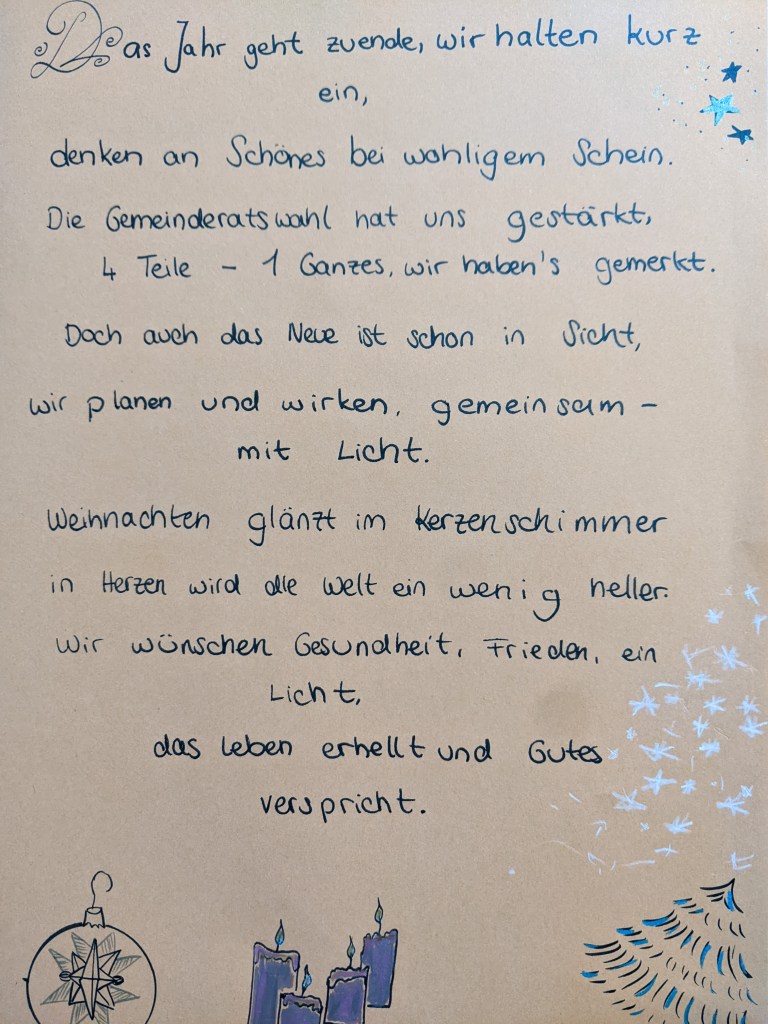 Das Jahr geht zuende, wir halten kurz
ein,
denken an Schönes bei wohligem Schein.
Die Gemeinderatswahl hat uns gestärkt,
4 Teile – 1 Ganzes, wir haben's gemerkt.
Doch auch das Neue ist schon in Sicht,
wir planen und wirken, gemeinsam –
mit Licht.
Weihnachten glänzt im Kerzenschimmer
in Herzen wird die Welt ein wenig heller.
Wir wünschen Gesundheit, Frieden, ein
Licht,
das Leben erhellt und Gutes
verspricht.